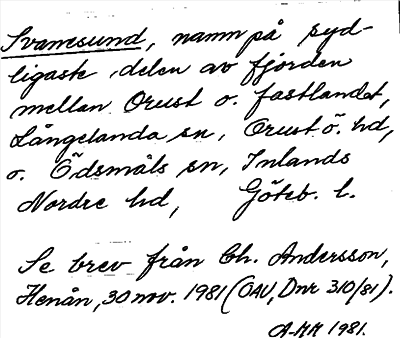 Svanesund, namn på syd-
ligaste delen av fjorden
mellan Orust o. fastlandet,
Långelanda sn, Orust ö. hd,
o. Ödsmåls sn, Inlands
Nordre hd, Göteb. l.
Se brev från Ch. Andersson,
Henån, 30 nov. 1981 (OAU, Dnr 310/81).
1981.